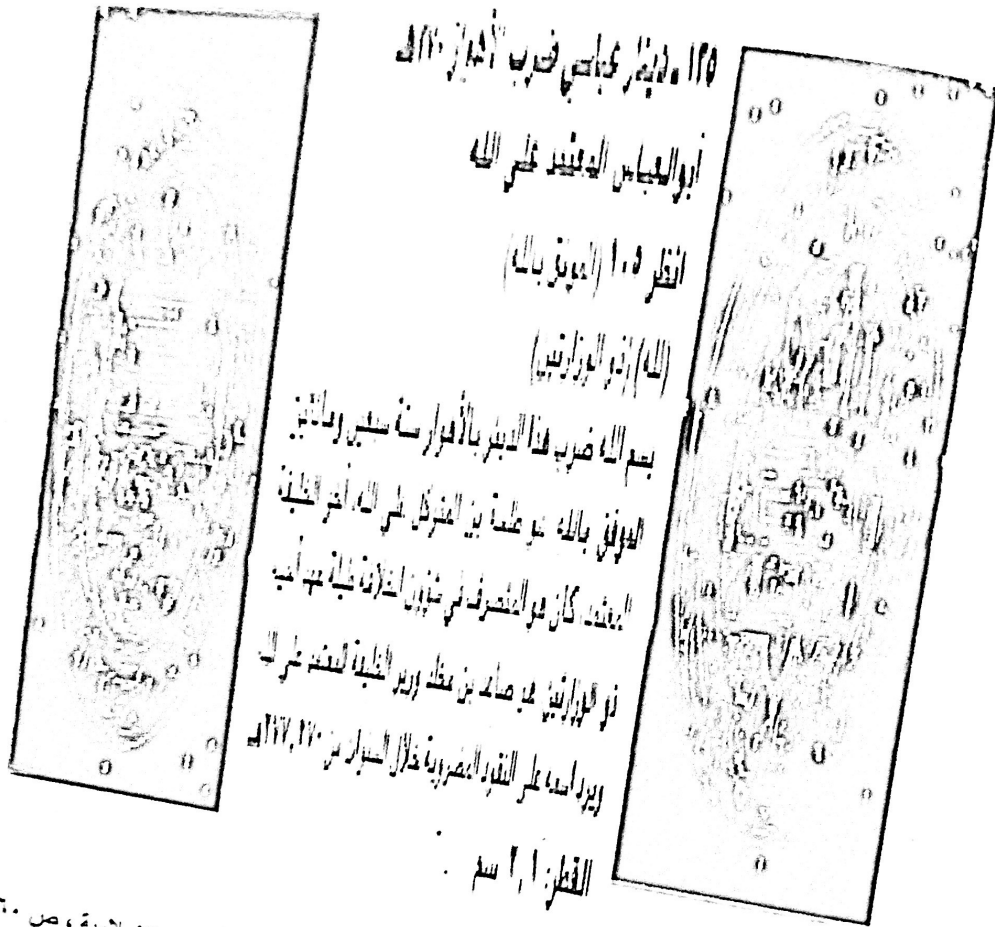 ١٢٥ ـ دينار عباسي ضرب الأهواز ٢٧٠هـ
أبوالعباس المعتمد على الله
انظر ١٠٥ (الموفق بالله)
(لله) (ذو الوزارتين)
بسم الله ضرب هذا الدينر بالأهواز سنة سبعين ومائتين
الموفق بالله هو طلحة بن المتوكل على الله، أخو الخليفة
المعتمد، كان هو المتصرف في شؤون الخلافة طيلة عهد أخيه
ذو الوزارتين هو صاعد بن مخلد وزير الخليفة المعتمد على الله
ويرد اسمه على النقود المضروبة خلال السنوات من
القطر: ٢,١ سم
، ص ٦٠